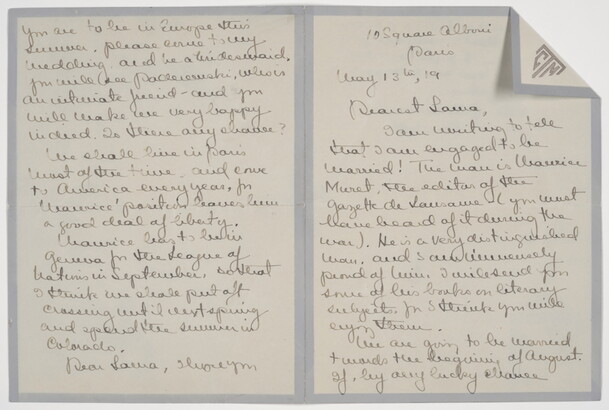 10 Square Alboni
Paris
May 13th, 19
Dearest Lama,
I am writing to tell
that I am engaged to be
married! The man is Maurice
Muret, the editor of the
Gazette de Lausanne (you must
have heard of it during the
war). He is a very distinguished
man, and I am immensely
proud of him. I will send you
some of his books on literary
subjects, for I think you will
enjoy them.
We are going to be married
towards the beginning of August.
If, by any lucky chance
you are to be in Europe this
summer, please come to my
wedding and be a bridesmaid.
You will see Paderewski, who is
an intimate friend - and you
will make me very happy
indeed. Is there any chance?
We shall live in Paris
most of the time, and come
to America every year, for
Maurice' position leaves him
a good deal of liberty.
Maurice has to be in
Geneva for the League of
Nations in September, so that
I think we shall put off
crossing until next spring
and spend the summer in
Colorado.
Dear Lama, I hope you